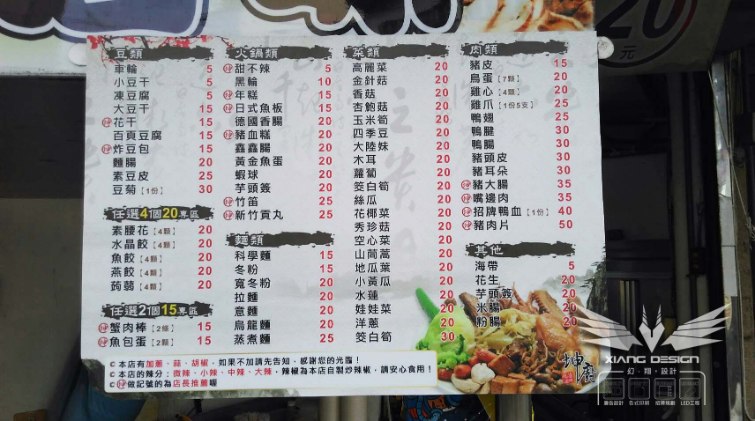 20
元
豆類
車輪 5
小豆干 5
凍豆腐 5
大豆干 15
花干 15
百頁豆腐 20
炸豆包 15
麵腸 20
素豆皮 25
豆菊【1份】 30
任選4個20專區
素腰花【4顆】 20
水晶餃【4顆】 20
魚餃【4顆】 20
燕餃【4顆】 20
蒟蒻【4顆】 20
任選2個15專區
蟹肉棒【2條】 15
魚包蛋【2顆】 15
火鍋類
甜不辣 5
黑輪 10
年糕 15
日式魚板 15
德國香腸 20
豬血糕 20
鑫鑫腸 20
黃金魚蛋 20
蝦球 20
芋頭簽 20
竹笛 25
新竹貢丸 25
麵類
科學麵 15
冬粉 15
寬冬粉 20
拉麵 20
意麵 20
烏龍麵 20
蒸煮麵 25
菜類
高麗菜 20
金針菇 20
香菇 20
杏鮑菇 20
玉米筍 20
四季豆 20
大陸妹 20
木耳 20
蘿蔔 20
筊白筍 20
絲瓜 20
花椰菜 20
秀珍菇 20
空心菜 20
山茼蒿 20
地瓜葉 20
小黃瓜 20
水蓮 20
娃娃菜 20
洋蔥 20
筊白筍 30
肉類
豬皮 15
鳥蛋【7顆】 20
雞心【4顆】 20
雞爪【1份5支】 25
鴨翅 25
鴨腱 30
鴨腸 30
豬頭皮 30
豬耳朵 30
豬大腸 35
嘴邊肉 35
招牌鴨血【1份】 40
豬肉片 50
其他
海帶 5
花生 20
芋頭簽 20
米腸 20
粉腸 20
本店有加蔥、蒜、胡椒，如果不加請先告知，感謝您的光臨！
本店的辣分：微辣、小辣、中辣、大辣，辣椒為本店自製炒辣椒，請安心食用！
做記號的為店長推薦喔
XIANG DESIGN
幻．翔．設計
廣告設計 各式印刷 招牌規劃 LED工程